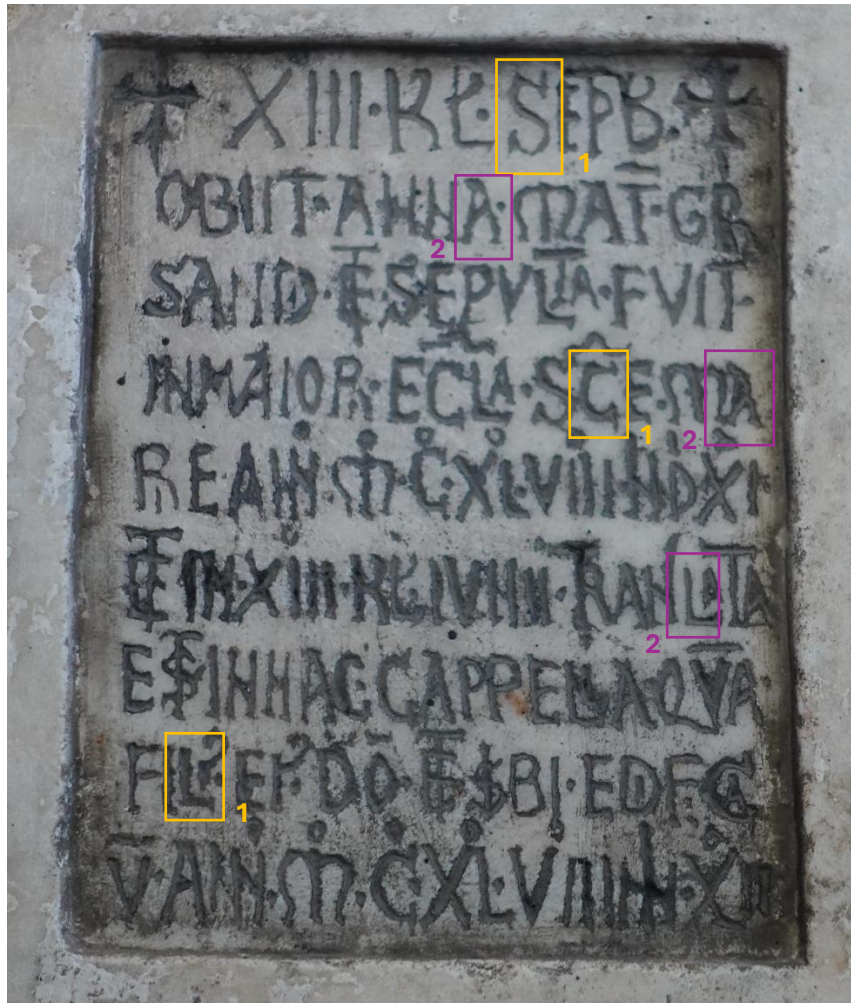 ✝ XIII·KŁ·SEPB·✝
OBIIT·ANNA·MAT·GR
SAND·ET·SEPVLTA·FVIT·
INMAIOR·ECLA·SCE·MA
REAIN·M·C·XL·VIIIINDXI·
ET IN·XIII·KŁIVNII·TRANLATA
ESTINHAC CAPPELLA·QVA
FIL EI DO·ET SBI·EDFCA
V·AIN·M·C·XL·VIIIIIN·XII